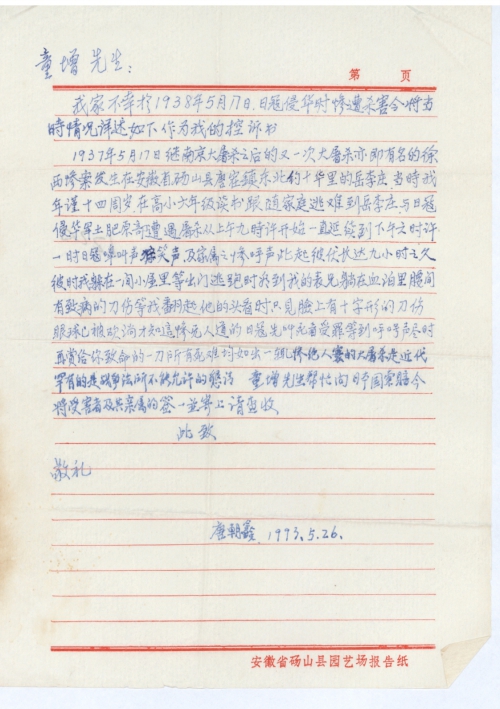 童增先生:
第 页
我家不幸于1938年5月17日,日冠侵华时惨遭杀害令将当
时情况详述如下作为我的控诉书
1937年5月17日继南京大屠杀之后的又一次大屠杀亦即有名的徐
西惨案发生在安徽省砀山县唐寨镇东北约十华里的岳李庄,当时我
年谨十四周岁,在高小六年级读书跟随家庭逃难到岳李庄,与日冠
侵华军土肥原部遭遇屠杀从上午九时许开始一直延续到下午六时许
一时日冠嚎叫声 哭声及家属之惨呼声此起彼伏长达九小时之久
彼时我躲在一间小屋里等出门逃跑时看到我的表兄躺在血泊里腰间
有致病的刀伤等我翻起他的头看时只见脸上有十字形的刀伤
眼球已被砍淌才知道惨无人道的日冠先叫死者受罪等到呼号声尽时
再资给你致命的一刀所有死难均如出一轨惨绝人寰的大屠杀是近代
罕有的是战争法所不能允许的 童增先生帮忙向日本国索赔今
将受害者及其亲属的签一并寄上请查收
此致
敬礼
唐朝 1993.5.26.
安徽省砀山县园艺场报告纸